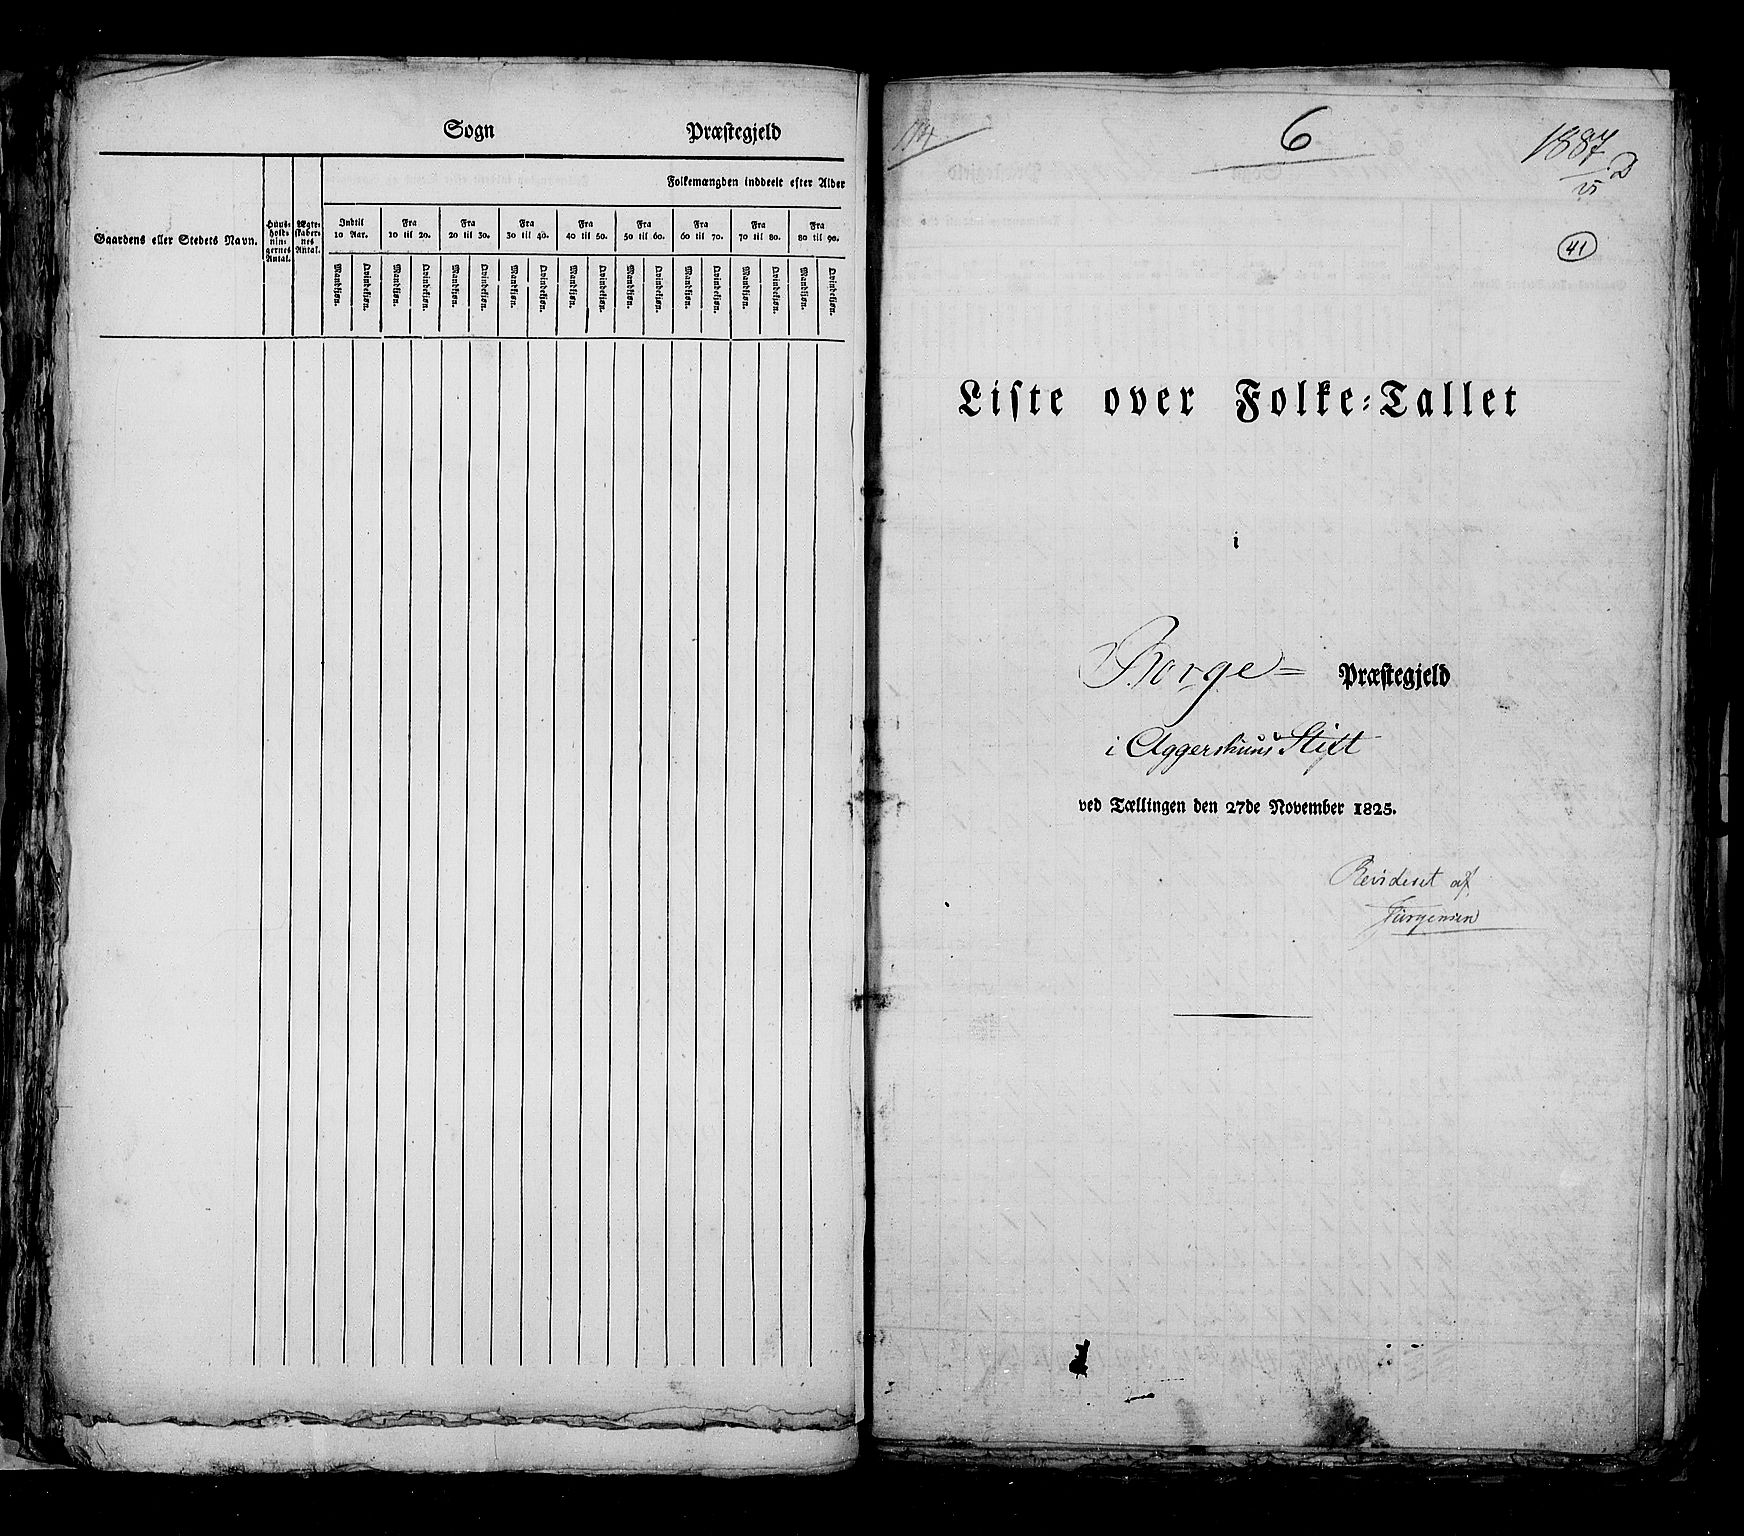 Sogn Præstegjeld
Folkemængden inddeelt efter Alder
Gaardens eller Stedets Navn.
Huus-
hold-
nin-
gernes
Antal.
Ægte-
skaber-
nes
Antal.
Indtil 10 Aar.
Fra 10 til 20.
Fra 20 til 30.
Fra 30 til 40.
Fra 40 til 50.
Fra 50 til 60.
Fra 60 til 70.
Fra 70 til 80.
Fra 80 til 90.
Mandkiøn. Qvindekiøn. Mandkiøn. Qvindekiøn. Mandkiøn. Qvindekiøn. Mandkiøn. Qvindekiøn. Mandkiøn. Qvindekiøn. Mandkiøn. Qvindekiøn. Mandkiøn. Qvindekiøn. Mandkiøn. Qvindekiøn. Mandkiøn. Qvindekiøn.
6
1887
D
41
Liste over Folke-Tallet
i
Borge Præstegjeld
i Aggershuus Stift
ved Tællingen den 27de November 1825.
Revideret af
Jürgensen